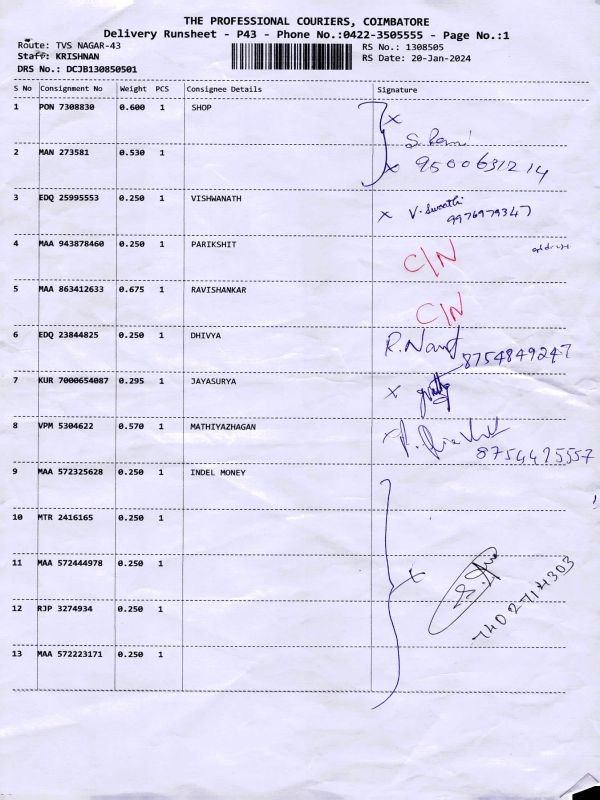 THE PROFESSIONAL COURIERS, COIMBATORE
Delivery Runsheet - P43 - Phone No.:0422-3505555 - Page No.:1
Route: TVS NAGAR-43 RS No.: 1308505
Staff: KRISHNAN RS Date: 20-Jan-2024
DRS No.: DCJB130850501
S No Consignment No Weight PCS Consignee Details Signature
1 PON 7308830 0.600 1 SHOP x
2 MAN 273581 0.530 1 x 9500631214
3 EDQ 25995553 0.250 1 VISHWANATH x V. Swathi
9976979347
4 MAA 943878460 0.250 1 PARIKSHIT C/N
5 MAA 863412633 0.675 1 RAVISHANKAR C/N
6 EDQ 23844825 0.250 1 DHIVYA 8754849247
7 KUR 7000654087 0.295 1 JAYASURYA x
8 VPM 5304622 0.570 1 MATHIYAZHAGAN x
8754425557
9 MAA 572325628 0.250 1 INDEL MONEY
10 MTR 2416165 0.250 1
11 MAA 572444978 0.250 1 x
12 RJP 3274934 0.250 1 7402714303
13 MAA 572223171 0.250 1